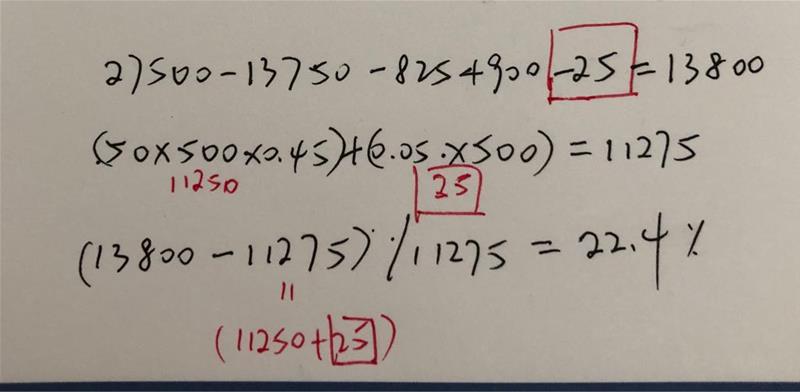 27500-13750-825+900-25=13800
(50×500×0.45)+(0.05×500)=11275
11250
25
(13800-11275)/11275=22.4%
11
(11250+25)